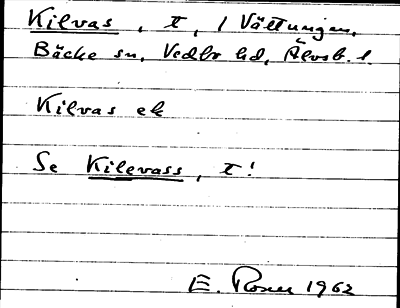 Kilvas, t, i Vättungen,
Bäcke sn, Vedbo hd, Älvsb. l.
Kilvas ek
Se Kilevass, t!
E. Rosell 1962